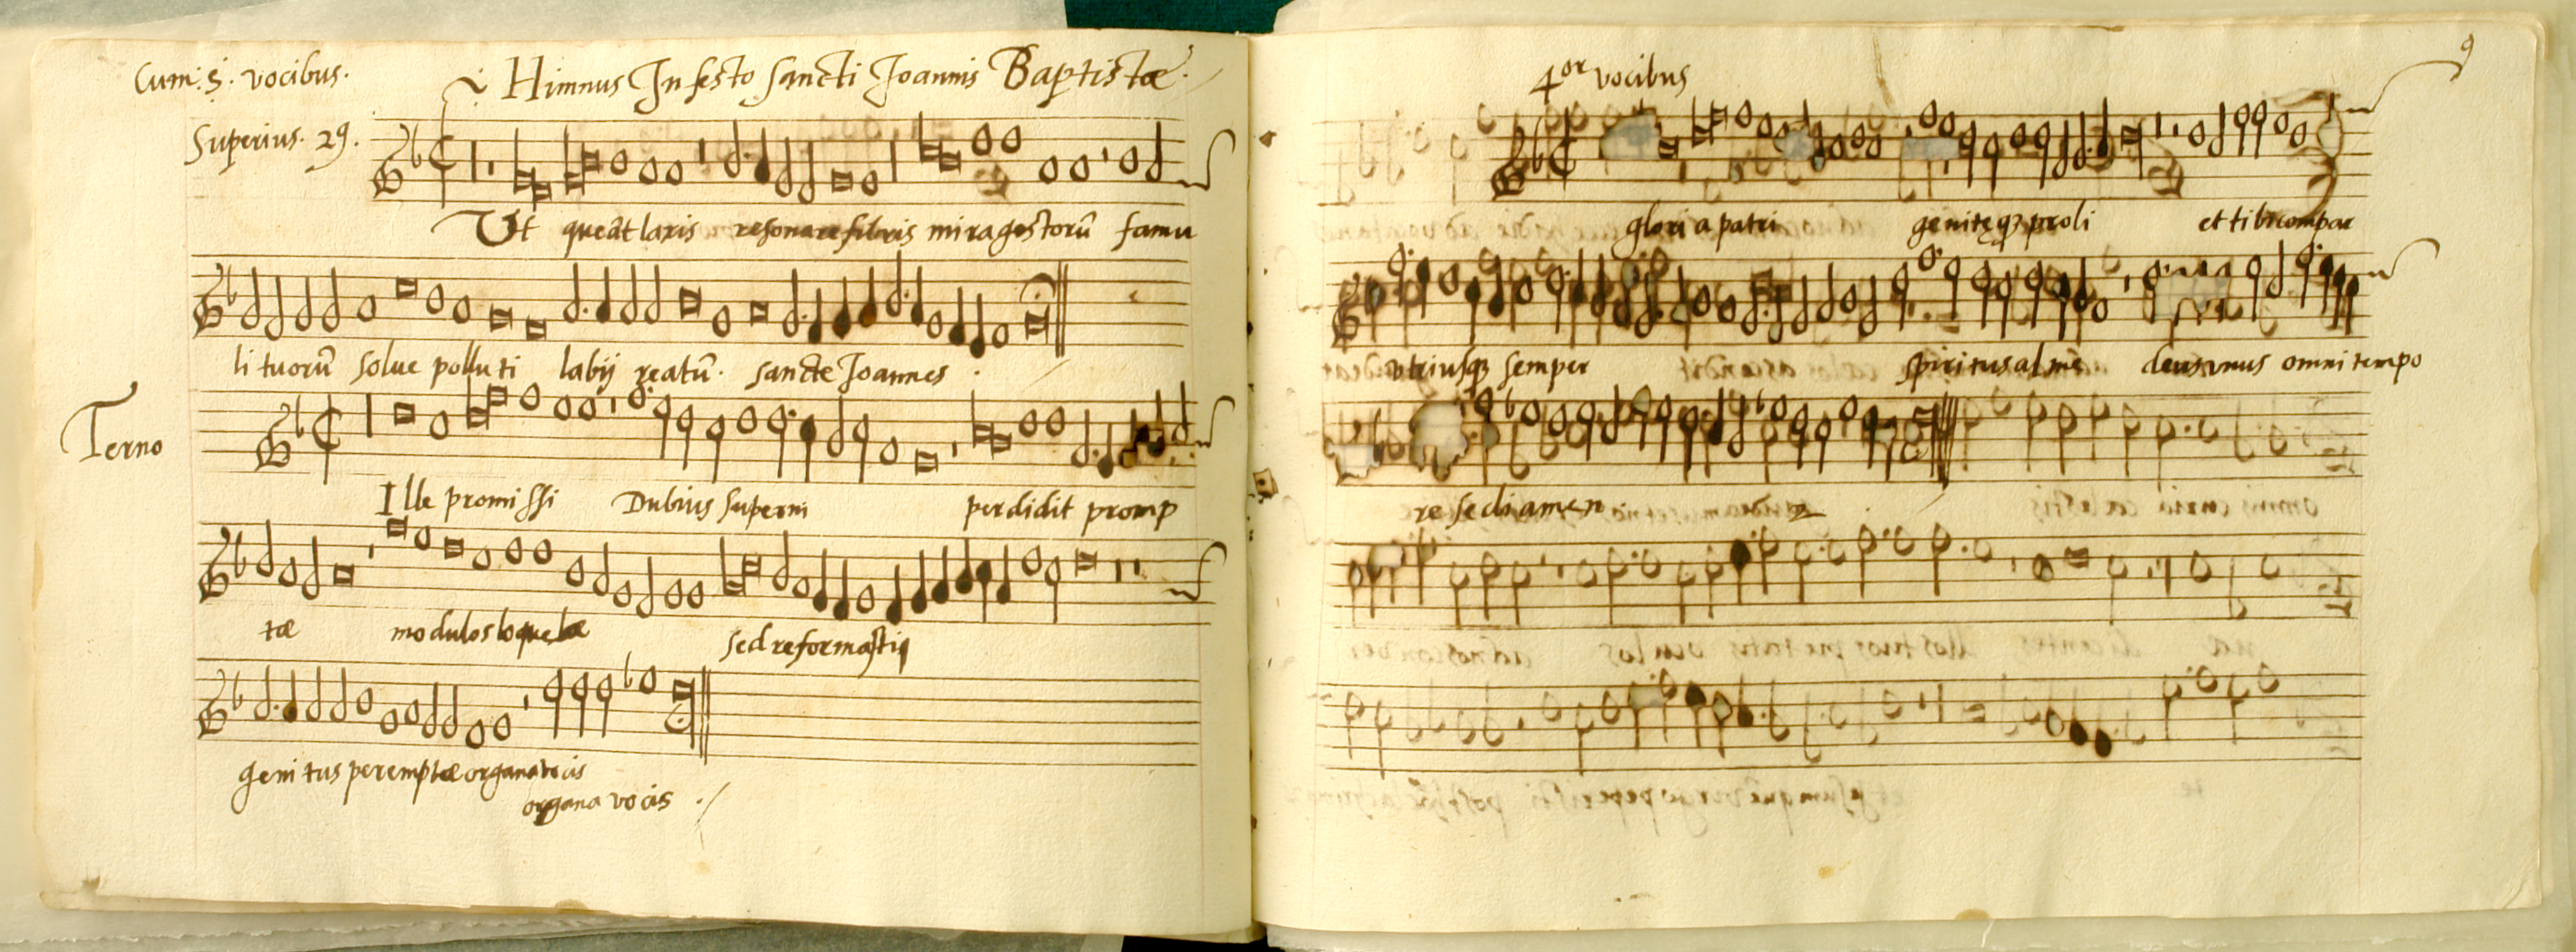 Cum. 5. vocibus.
Himnus In festo sancti Joannis Baptistæ.
Superius. 29.
Ut queãt laxis resonare fibris mira gestorũ famu
li tuorũ solue polluti labij reatũ. sancte Joannes.
Terno
Ille promissi Dubius superni perdidit promp
tæ modulos loquelæ sed reformasti
genitus peremptæ organa vocis
organa vocis
9
4or vocibus
gloria patri geniteqz proli et tibi compar
vtriusqz semper spiritus alme deus vnus omni tempo
re secli amen